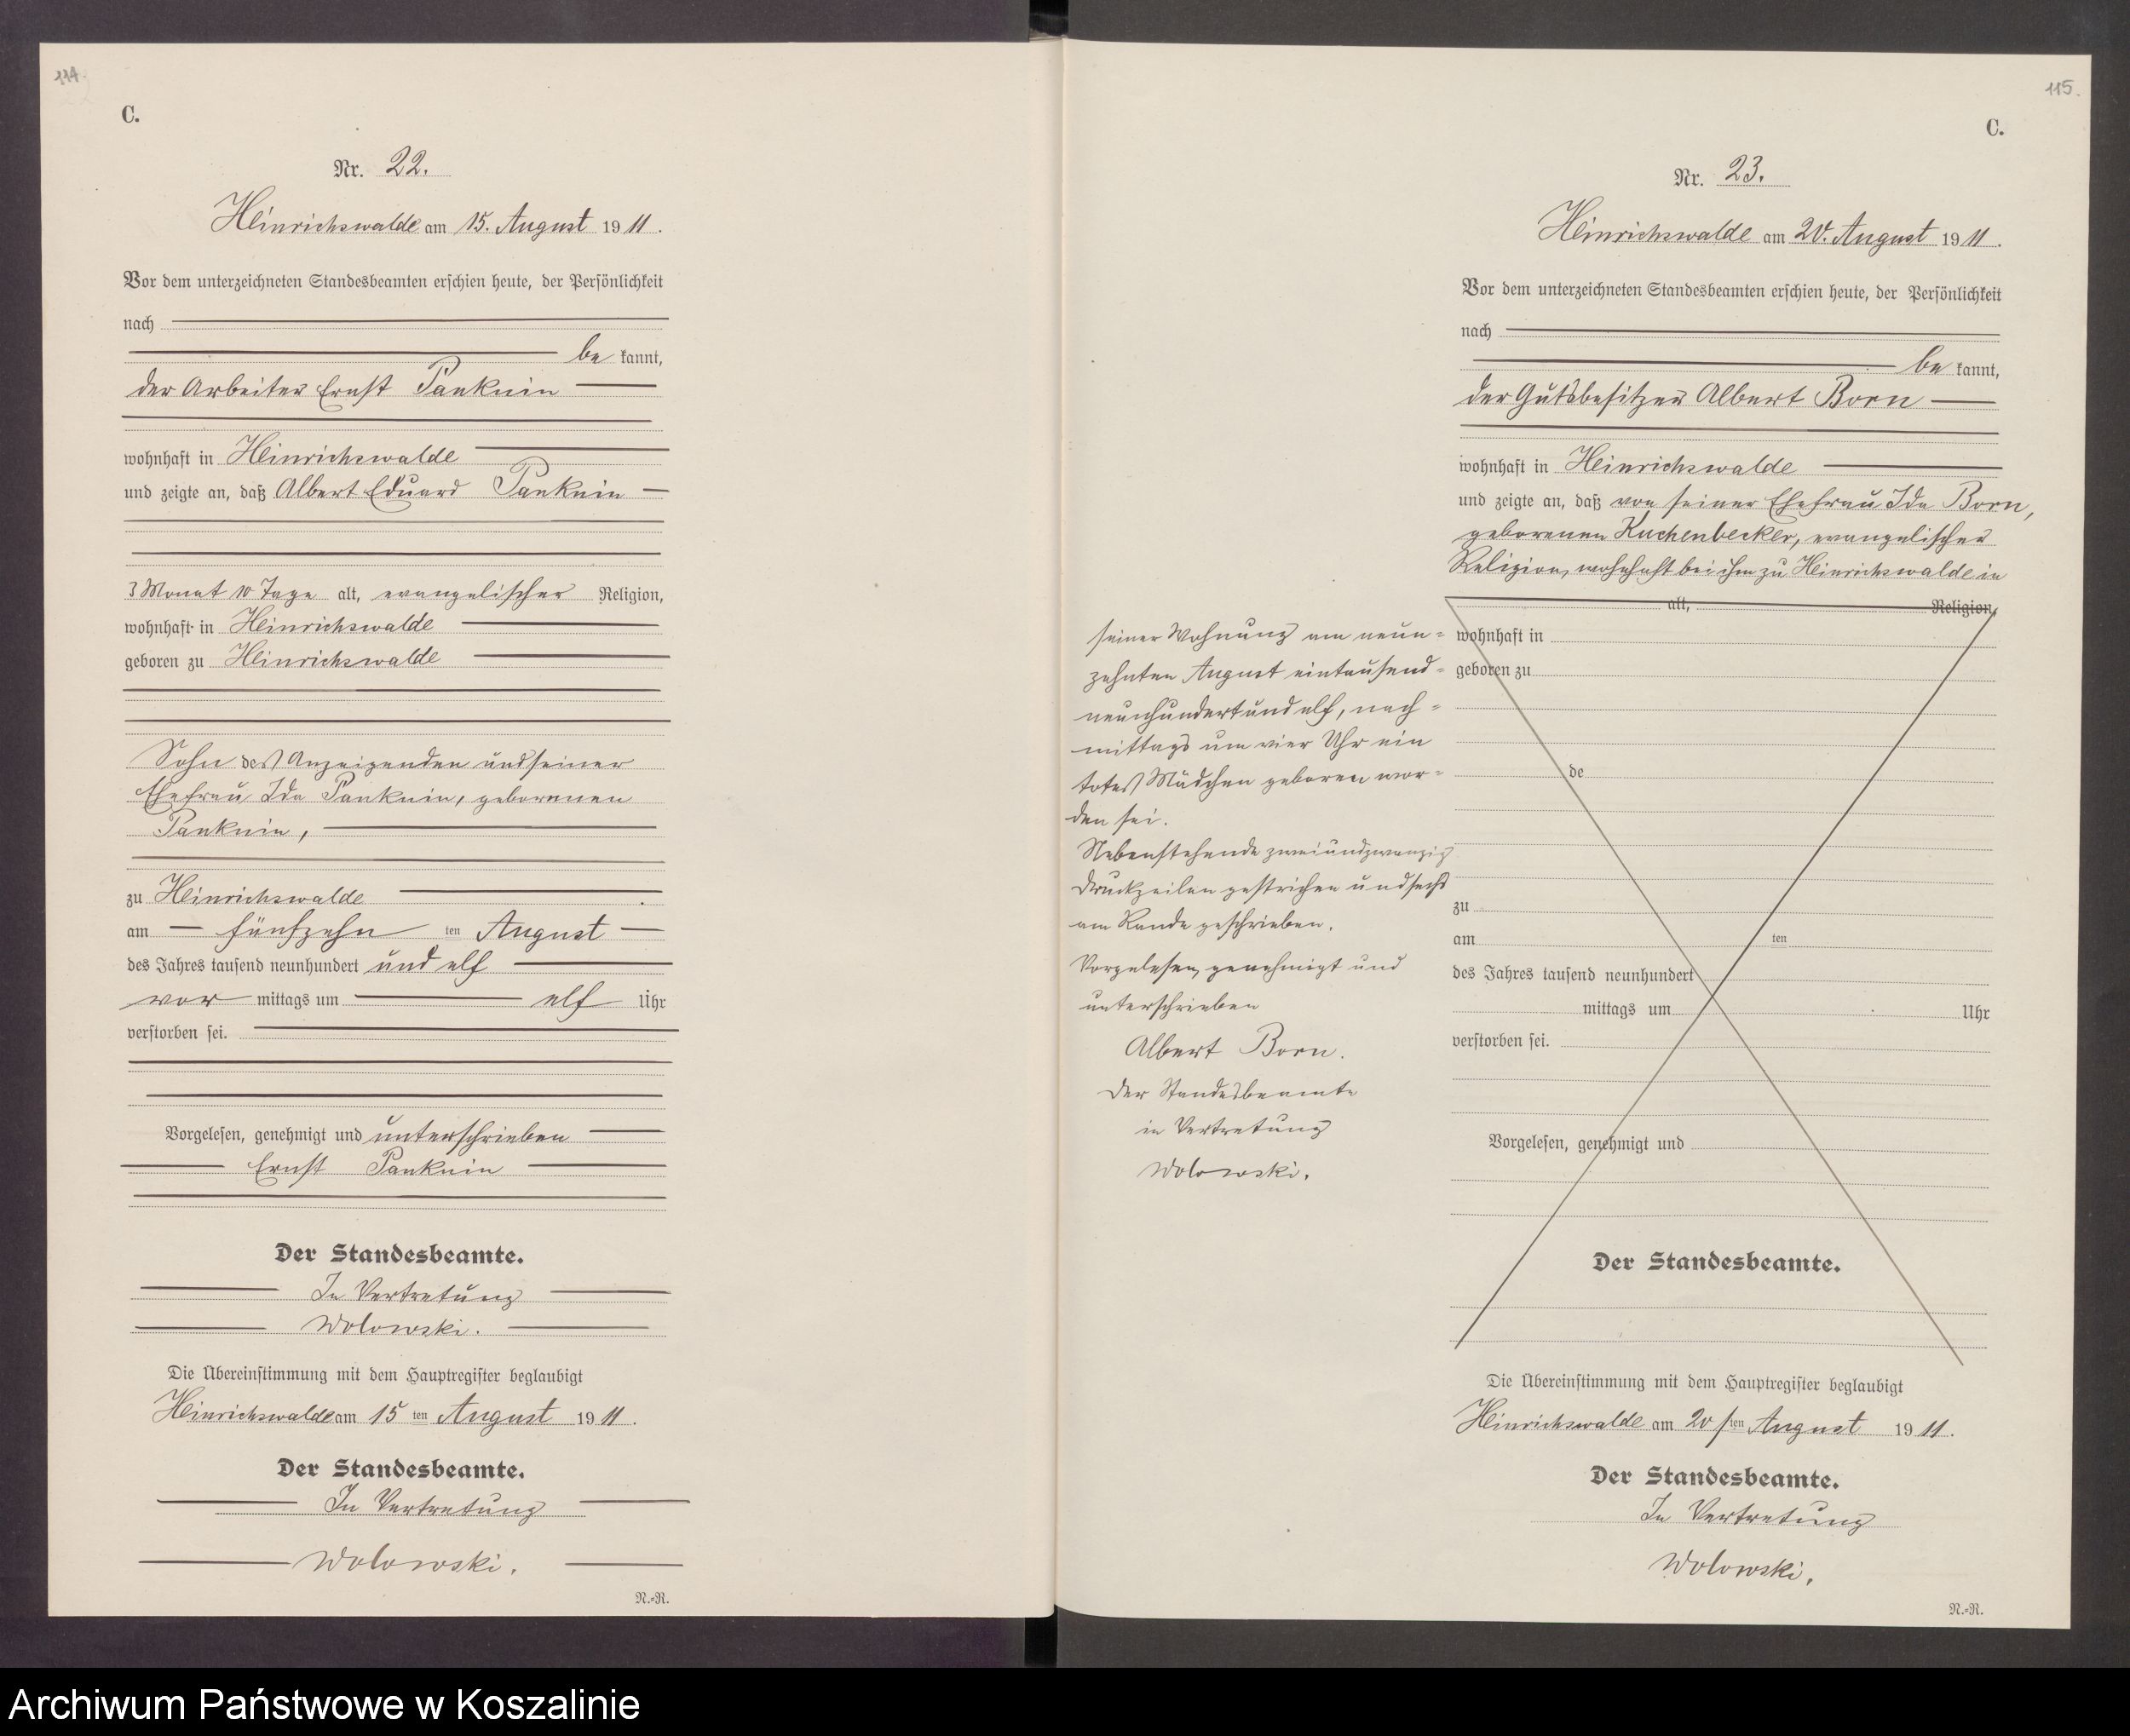 114.
C.
Nr. 22.
Heinrichswalde am 15. August 1911.
Vor dem unterzeichneten Standesbeamten erschien heute, der Persönlichkeit
nach
be kannt,
der Arbeiter Ernst Panknin
wohnhaft in Heinrichswalde
und zeigte an, daß Albert Eduard Panknin
3 Monat 10 Tage alt, evangelischer Religion,
wohnhaft in Heinrichswalde
geboren zu Heinrichswalde
Sohn des Anzeigenden und seiner
Ehefrau Ida Panknin, geborenen
Panknin,
zu Heinrichswalde
am fünfzehn ten August
des Jahres tausend neunhundert und elf
vor mittags um elf Uhr
verstorben sei.
Vorgelesen, genehmigt und unterschrieben
Ernst Panknin
Der Standesbeamte.
In Vertretung
Wolowski.
Die Übereinstimmung mit dem Hauptregister beglaubigt
Heinrichswalde am 15 ten August 1911.
Der Standesbeamte.
In Vertretung
Wolowski.
N.-R.
115.
C.
Nr. 23.
Heinrichswalde am 20. August 1911.
Vor dem unterzeichneten Standesbeamten erschien heute, der Persönlichkeit
nach
be kannt,
der Gutsbesitzer Albert Born
wohnhaft in Heinrichswalde
und zeigte an, daß von seiner Ehefrau Ida Born,
geborenen Kuchenbecker, evangelischer
Religion, wohnhaft bei ihm zu Heinrichswalde in
alt, Religion,
seiner Wohnung am neun=
zehnten August eintausend=
neunhundert und elf, nach=
mittags um vier Uhr ein
totes Mädchen geboren wor=
den sei.
Nebenstehende zweiundzwanzig
Druckzeilen gestrichen und sechs
am Rande geschrieben.
Vorgelesen, genehmigt und
unterschrieben
Albert Born.
Der Standesbeamte
in Vertretung
Wolowski.
wohnhaft in
geboren zu
de
zu
am ten
des Jahres tausend neunhundert
mittags um Uhr
verstorben sei.
Vorgelesen, genehmigt und
Der Standesbeamte.
Die Übereinstimmung mit dem Hauptregister beglaubigt
Heinrichswalde am 20 ten August 1911.
Der Standesbeamte.
In Vertretung
Wolowski.
N.-R.
Archiwum Państwowe w Koszalinie